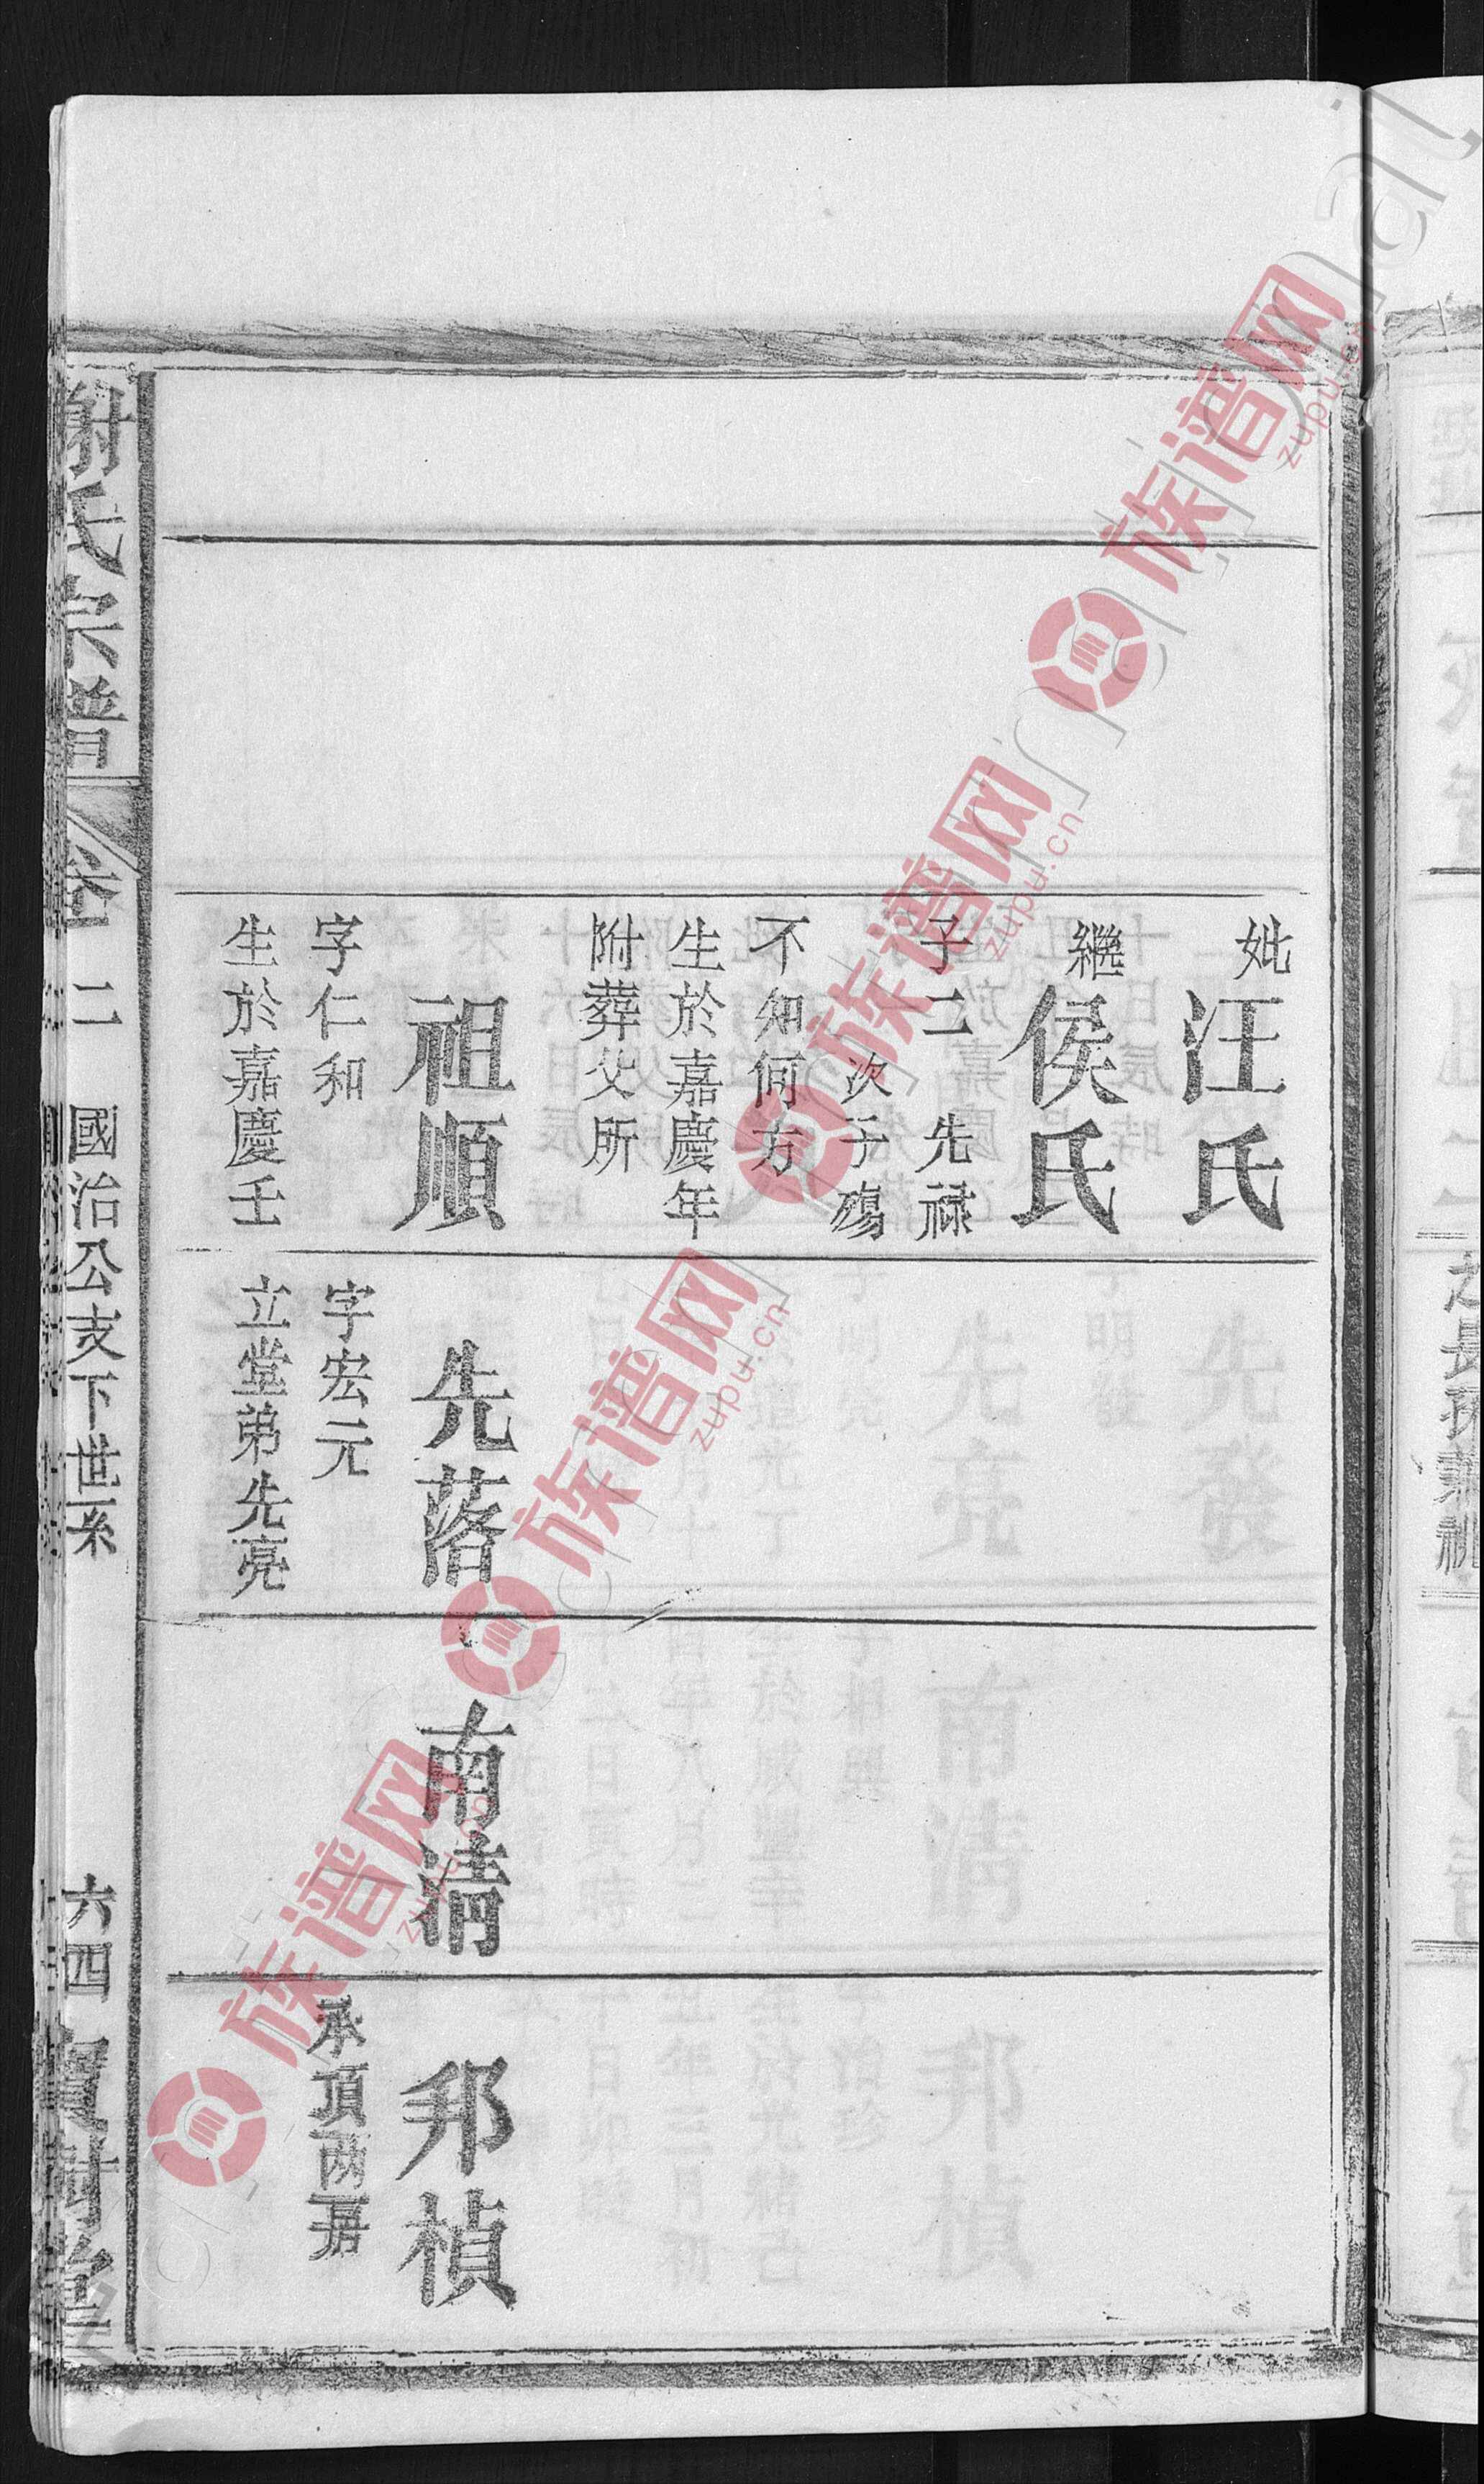 妣汪氏
繼侯氏
子二 先祿
次子殤
不知何方
生於嘉慶年
附葬父所
祖順
字仁和
生於嘉慶壬
先落
字宏元
立堂弟先亮
南清
邦楨
承頂两房
謝氏宗譜
卷二 國治公支下世系 六四 寶樹堂
族谱网
zupu.cn
族谱网
zupu.cn
族谱网
zupu.cn
族谱网
zupu.cn